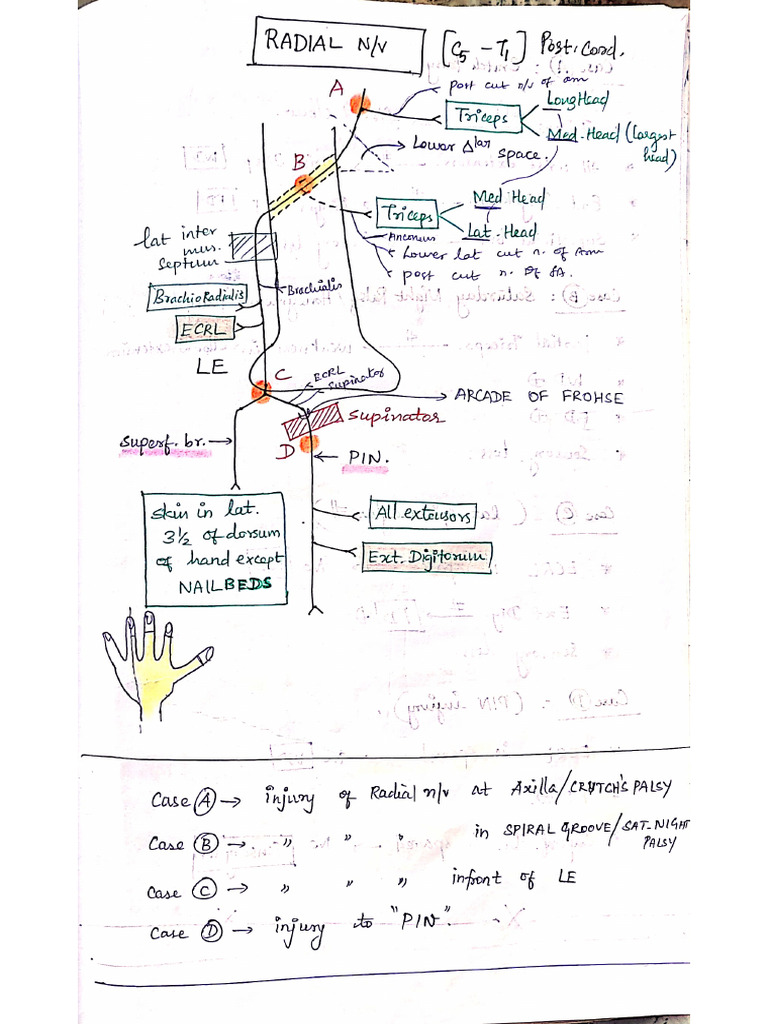 RADIAL N/V [C5 - T1] Post. Cord.
A
post cut n/v of arm
Triceps
Long Head
Med. Head (largest head)
Lower Δlar space.
B
Triceps
Med Head
Lat. Head
Anconeus
Lower lat cut n. of Arm
post cut n. of FA.
lat inter
mus.
septum
Brachialis
BrachioRadialis
ECRL
LE
C
ECRL
Supinator
ARCADE OF FROHSE
Supinator
Superf. br.
D
PIN.
Skin in lat.
3½ of dorsum
of hand except
NAILBEDS
All extensors
Ext. Digitorum
Case A → injury of Radial n/v at Axilla/CRUTCH'S PALSY
Case B → " " " in SPIRAL GROOVE/SAT-NIGHT
PALSY
Case C → " " " infront of LE
Case D → injury to "PIN".